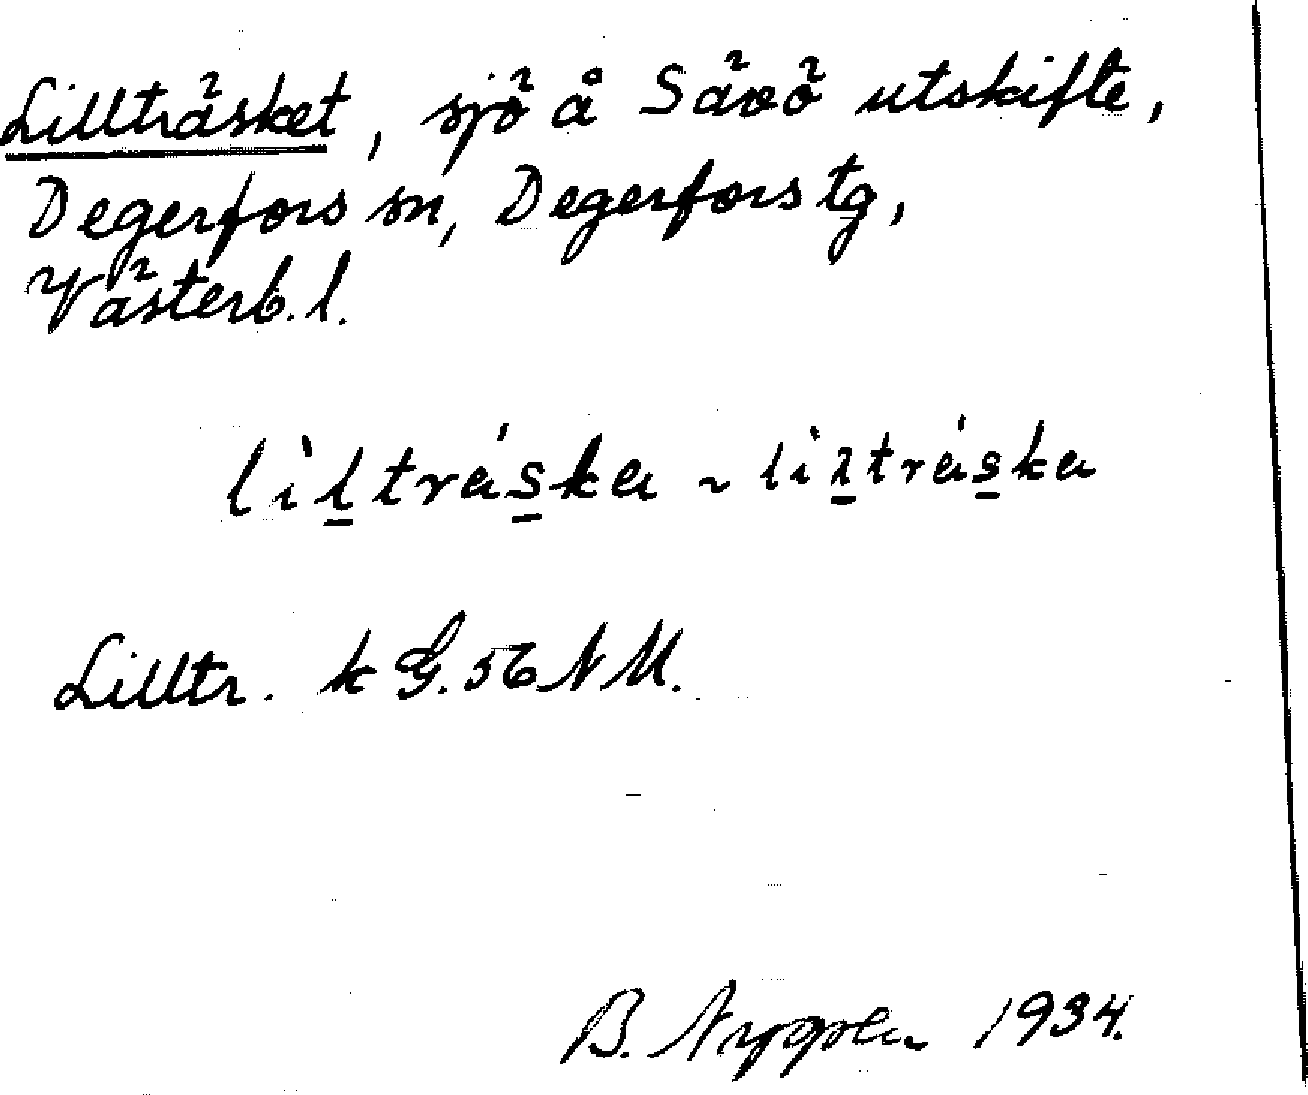 Lillträsket, sjö å Sävö utskifte,
Degerfors sn, Degerfors tg,
Västerb. l.
lìl̲trás̲ka ~ lìl̲trás̲ka
Lilltr. k G. 56 NM.
B. 1934.